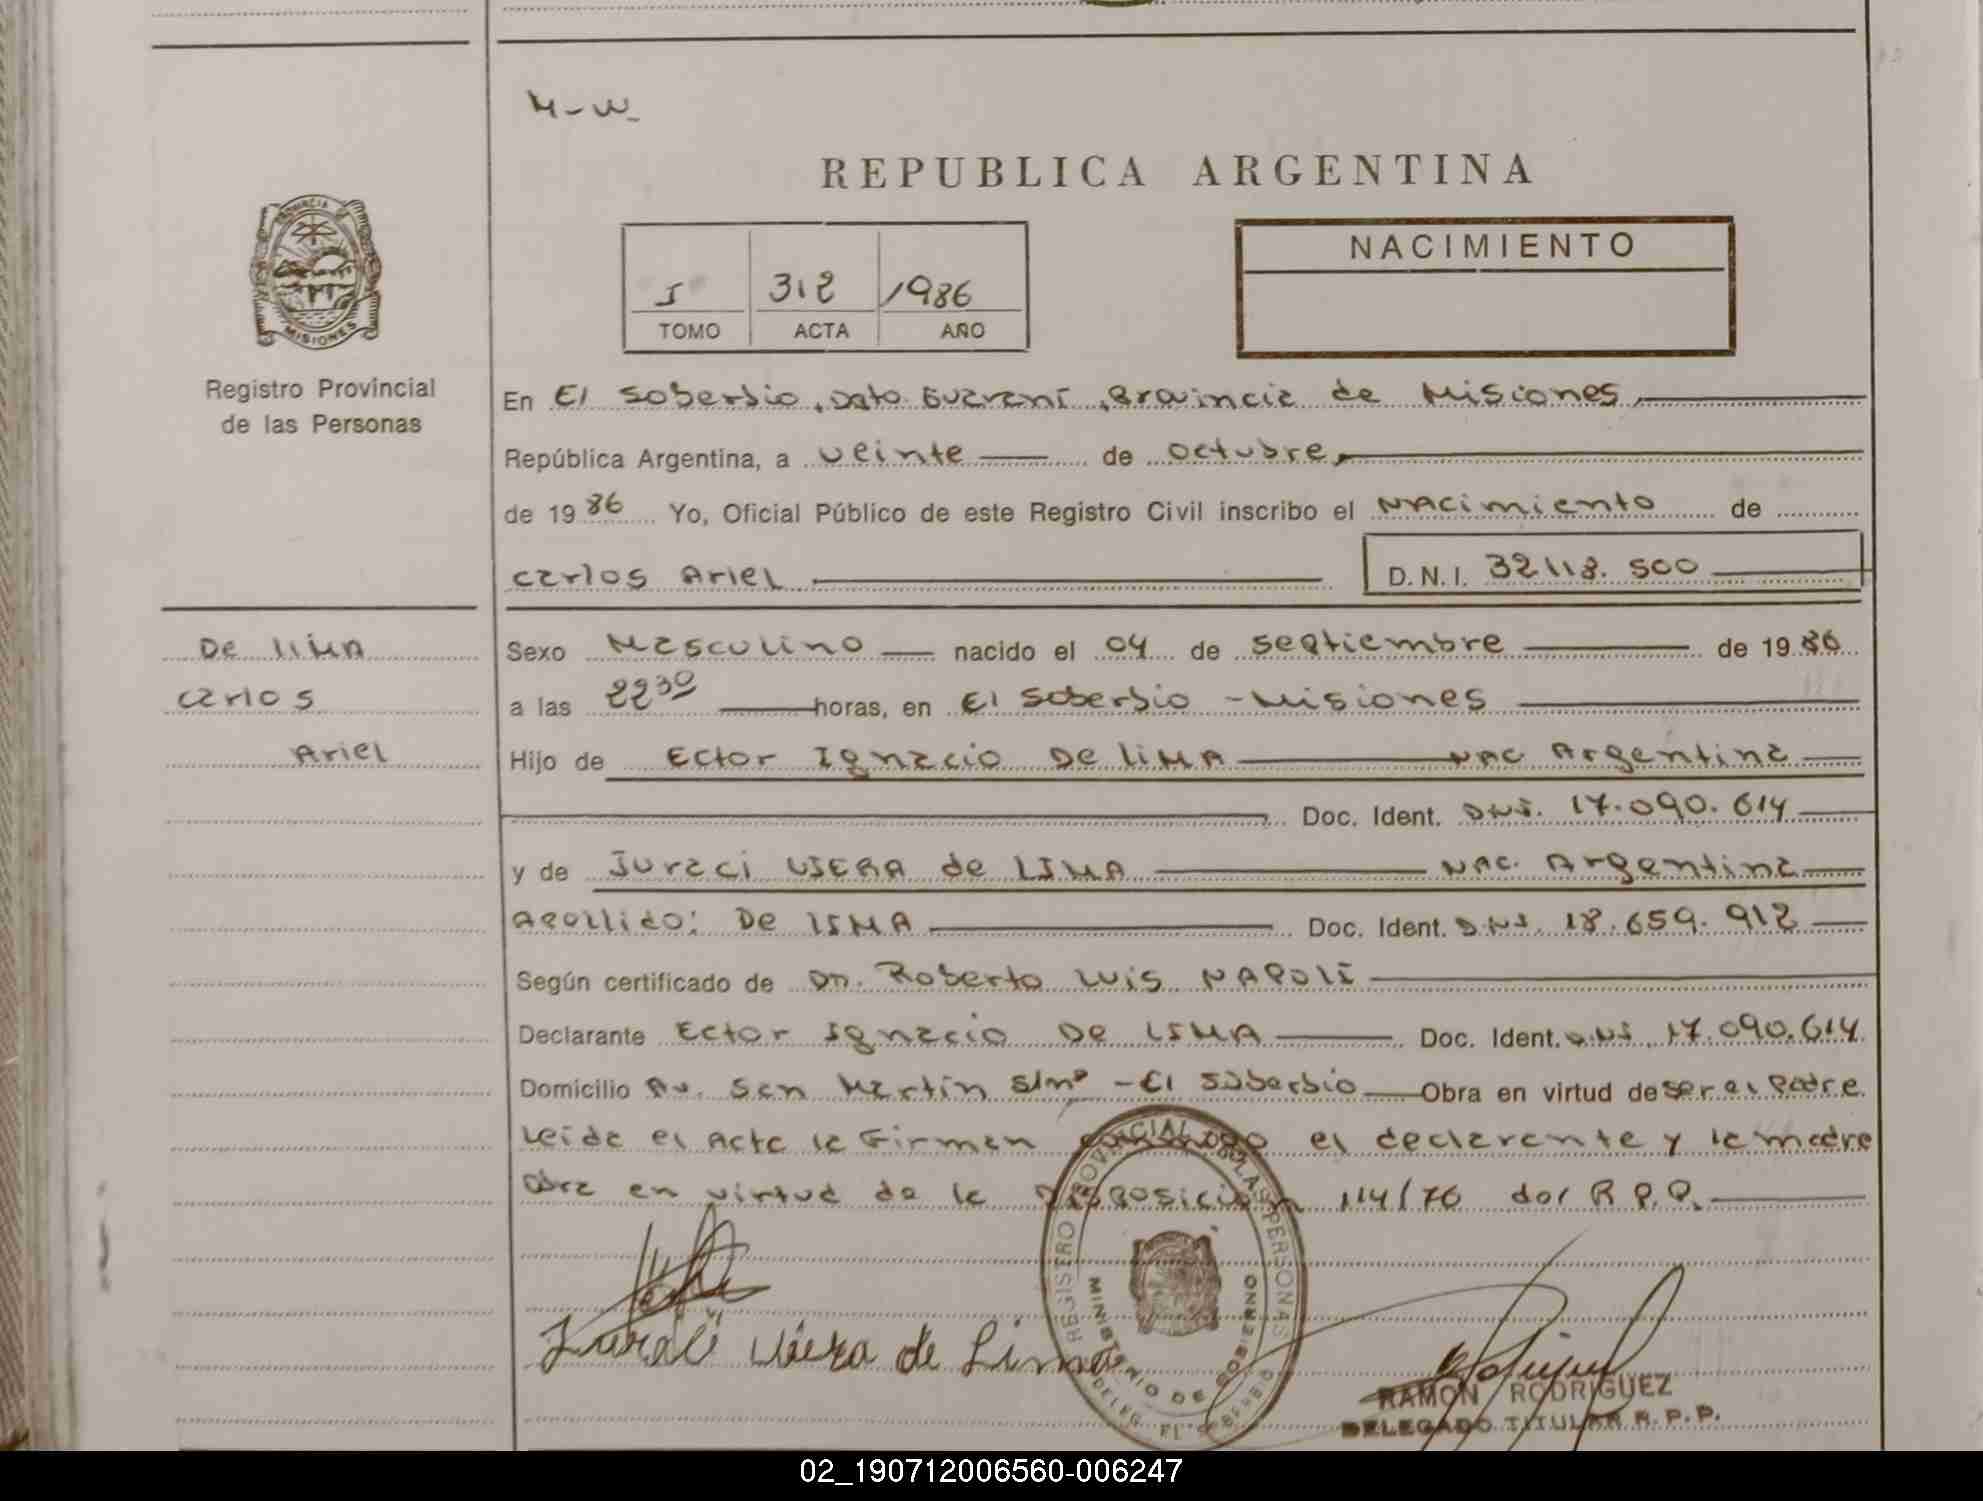 M-W
REPUBLICA ARGENTINA
PROVINCIA DE
MISIONES
I 312 1986
TOMO ACTA AÑO
NACIMIENTO
Registro Provincial
de las Personas
En El Soberbio, Dpto Guaraní, Provincia de Misiones,
República Argentina, a veinte de octubre,
de 1986 Yo, Oficial Público de este Registro Civil inscribo el Nacimiento de
Carlos Ariel D.N.I. 32118.500
De LIMA
Carlos
Ariel
Sexo Masculino nacido el 04 de septiembre de 1986
a las 22 30 horas, en El Soberbio - Misiones
Hijo de Ector Ignacio De LIMA NAC Argentina
Doc. Ident. DNI. 17.090.614
y de Juraci VIERA de LIMA NAC. Argentina
Apellido: De LIMA Doc. Ident. DNI. 18.659.912
Según certificado de Dn. Roberto Luis NAPOLI
Declarante Ector Ignacio De LIMA Doc. Ident. DNI. 17.090.614
Domicilio Av. San Martín S/nº - El Soberbio Obra en virtud de ser el Padre
Leida el Acta la Firman conmigo el declarante y la madre
obra en virtud de la Disposición 114/76 del R.P.P.
REGISTRO PROVINCIAL DE LAS PERSONAS
MINISTERIO DE GOBIERNO
DELEG. EL SOBERBIO
Juraci Viera de Lima
RAMON RODRIGUEZ
DELEGADO TITULAR R.P.P.
02_190712006560-006247